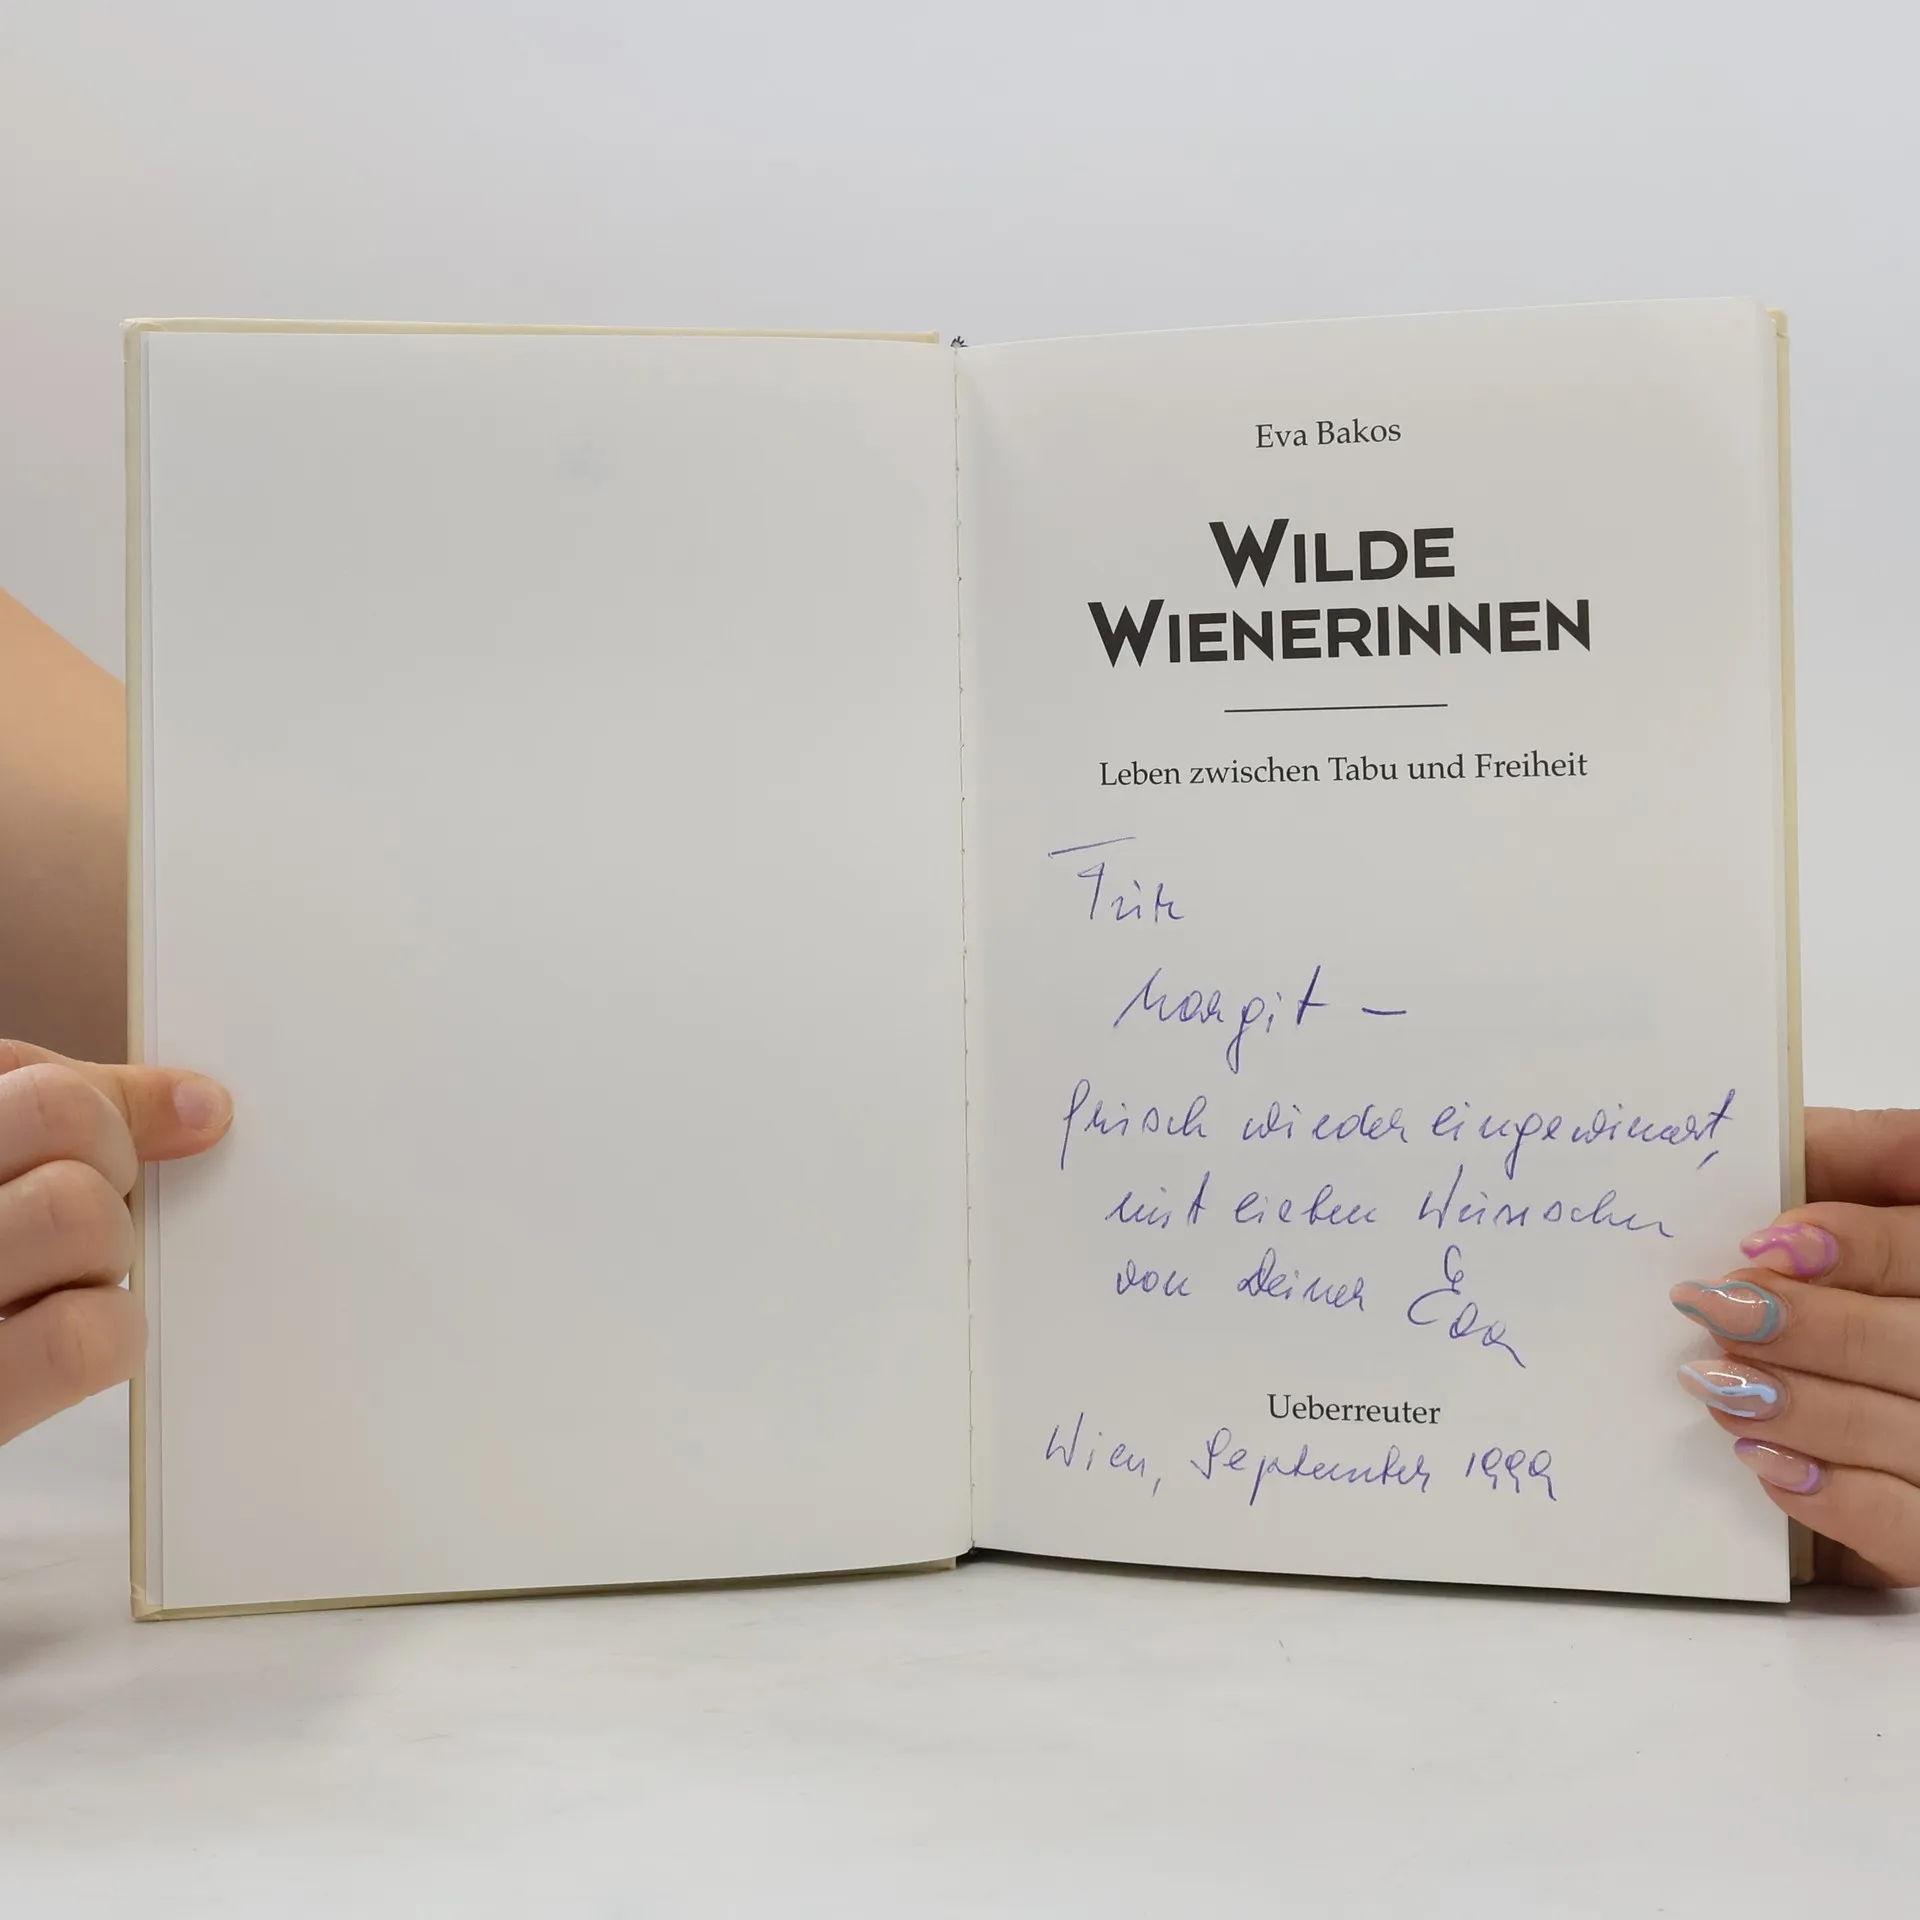 Eva Bakos
WILDE
WIENERINNEN
Leben zwischen Tabu und Freiheit
Für
Margit –
frisch wieder eingewienert,
mit lieben Wünschen
von Deiner Eva
Ueberreuter
Wien, September 1999